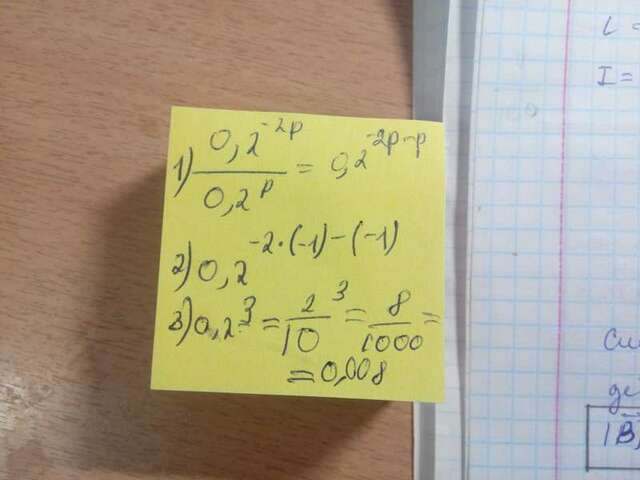 1) 0,2^-2p / 0,2^p = 0,2^-2p-p
2) 0,2^-2·(-1)-(-1)
3) 0,2^3 = 2/10^3 = 8/1000 =
= 0,008
L =
I =